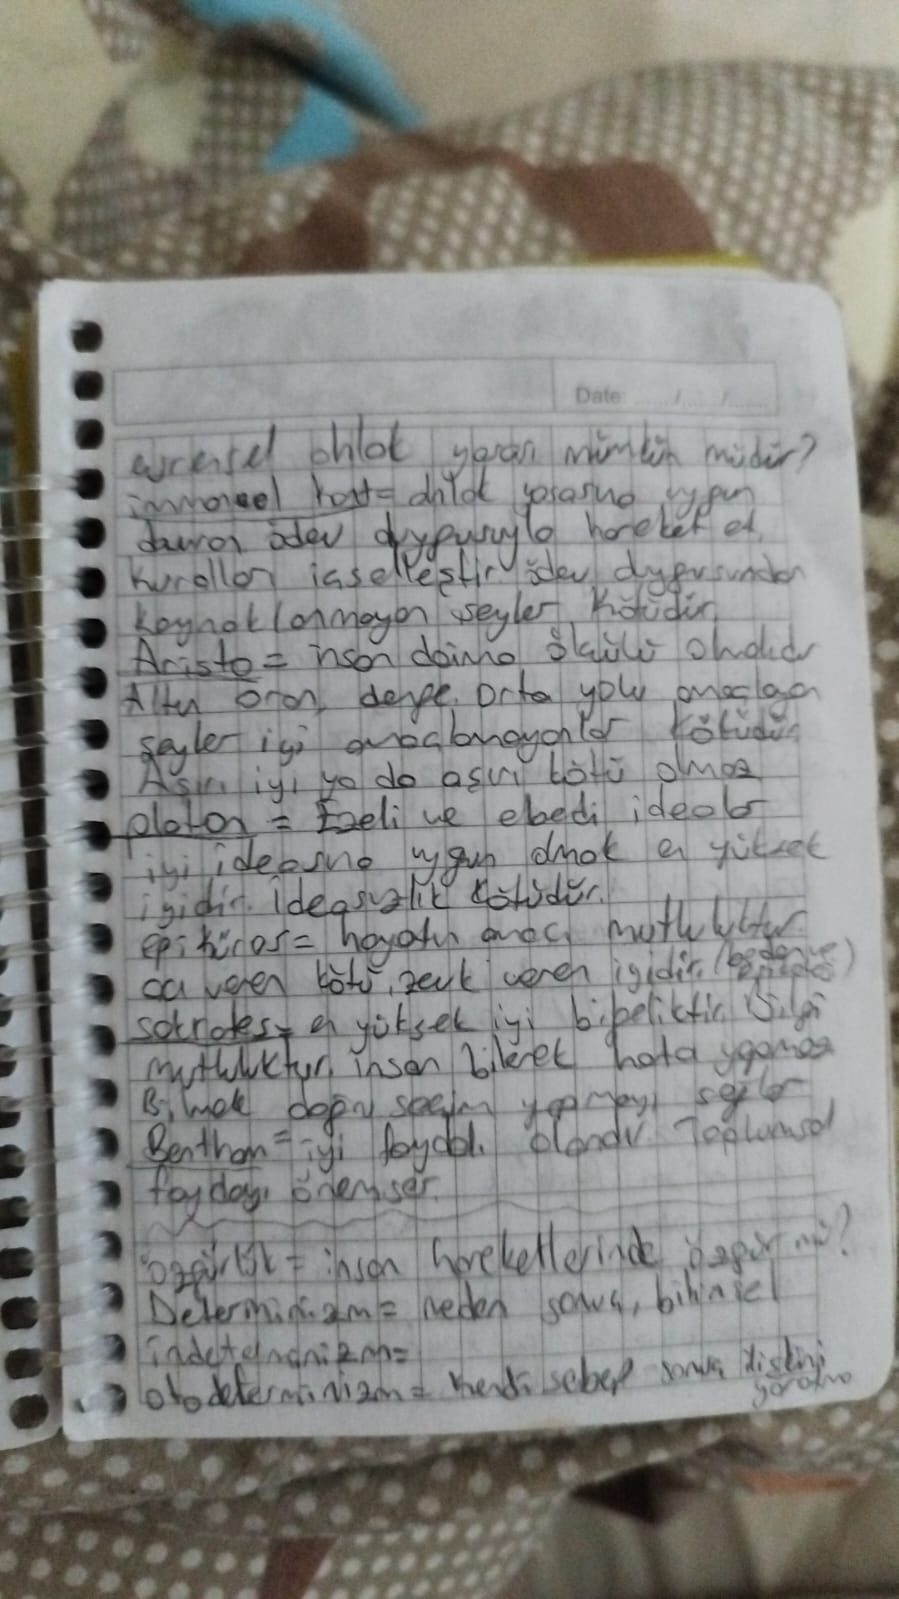 Date: ....../....../......
evrensel ahlak yasası mümkün müdür?
immanuel kant= ahlak yasasına uygun
davran ödev duygusuyla hareket et.
kuralları içselleştir ödev duygusundan
kaynaklanmayan şeyler kötüdür.
Aristo = insan daima ölçülü olmalıdır
Altın oran, denge. Orta yolu amaçlayan
şeyler iyi amaçlamayanlar kötüdür
Aşırı iyi ya da aşırı kötü olmaz
platon = Ezeli ve ebedi idealar
iyi ideasına uygun olmak en yüksek
iyidir. İdeasızlık kötüdür.
epiküros= hayatın amacı mutluluktur.
acı veren kötü, zevk veren iyidir.
sokrates= en yüksek iyi bilgeliktir. Bilgi
mutluluktur, insan bilerek hata yapmaz
Bilmek doğru seçim yapmayı sağlar
Bentham= iyi faydalı olandır. Toplumsal
faydayı önemser.
özgürlük= insan hareketlerinde özgür mü?
Determinizm= neden sonuç, bilimsel
indeterminizm=
otodeterminizm= kendi sebep sonuç ilişkini
yaratma